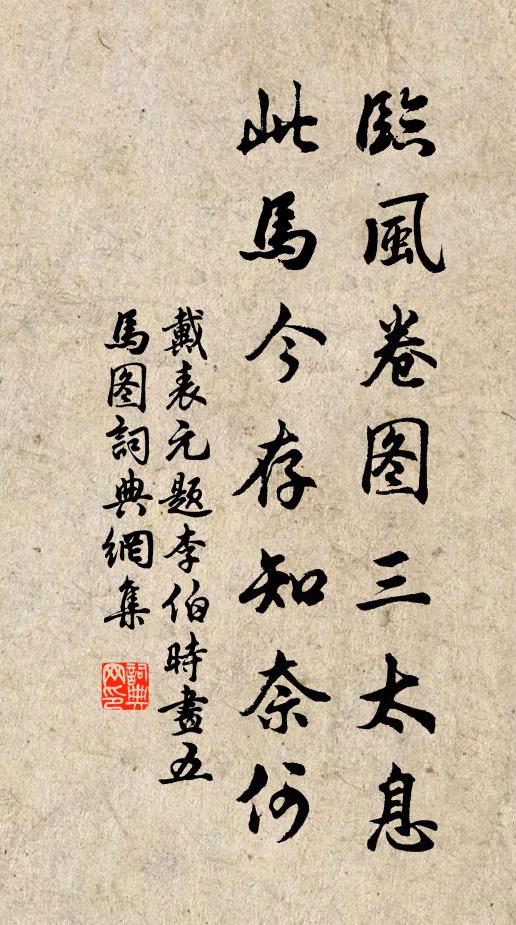 臨風卷图三太息
此馬今存知奈何
戴表元题李伯時畫五
馬图詞典網集
詞典
网印